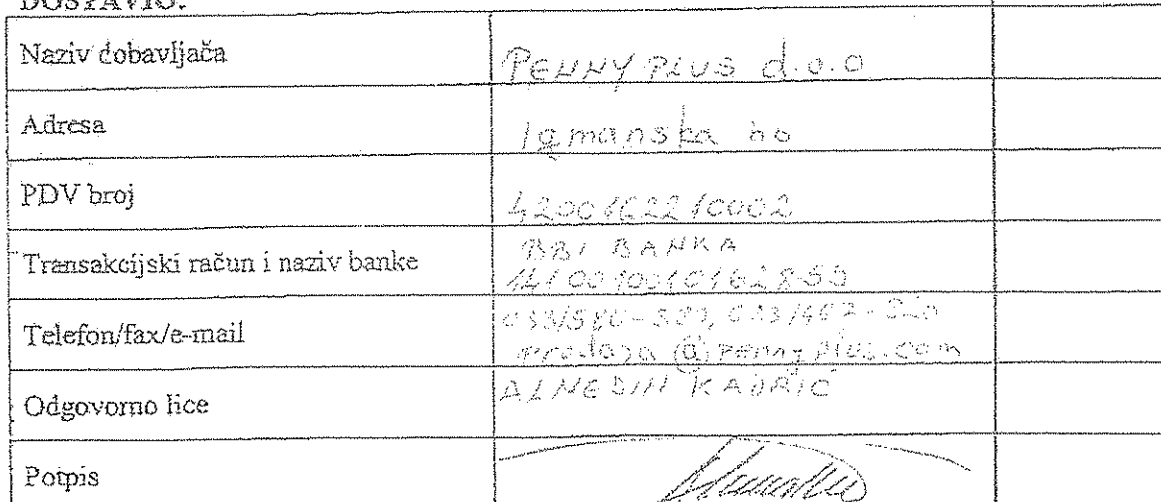 DOSTAVIO:
Naziv dobavljača PENNY PLUS d.o.o
Adresa Igmanska bb
PDV broj 4200162210002
Transakcijski račun i naziv banke BBI BANKA
Telefon/fax/e-mail
prodaja@pennyplus.com
Odgovorno lice ALNEDIN KADRIĆ
Potpis